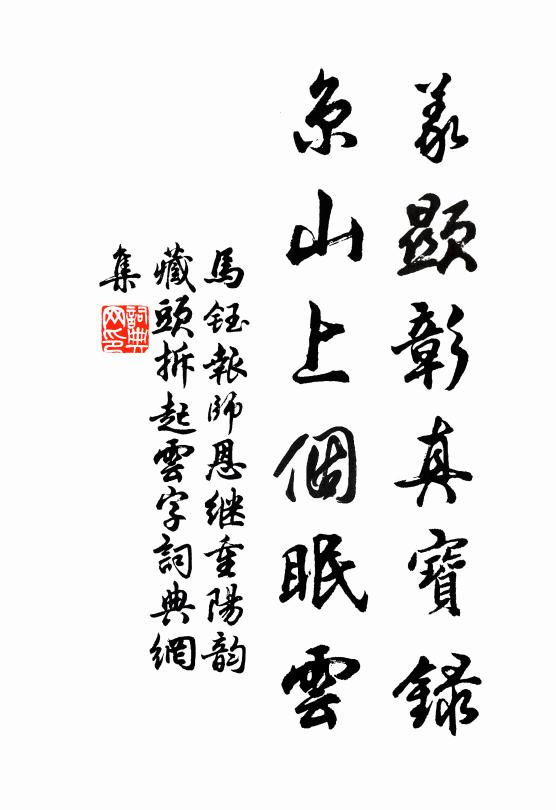 義顯彰真寶錄
京山上個眠雲
馬鈺報師恩継重陽韵
藏頭拆起雲字詞典網
集
詞典
网印